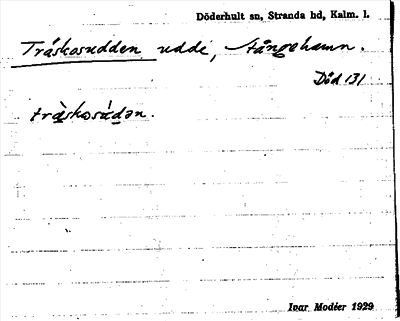 Döderhult sn, Stranda hd, Kalm. l.
Träskosudden udde, Stångehamn.
Död 131
trä̀skosúdən.
Ivar Modéer 1929